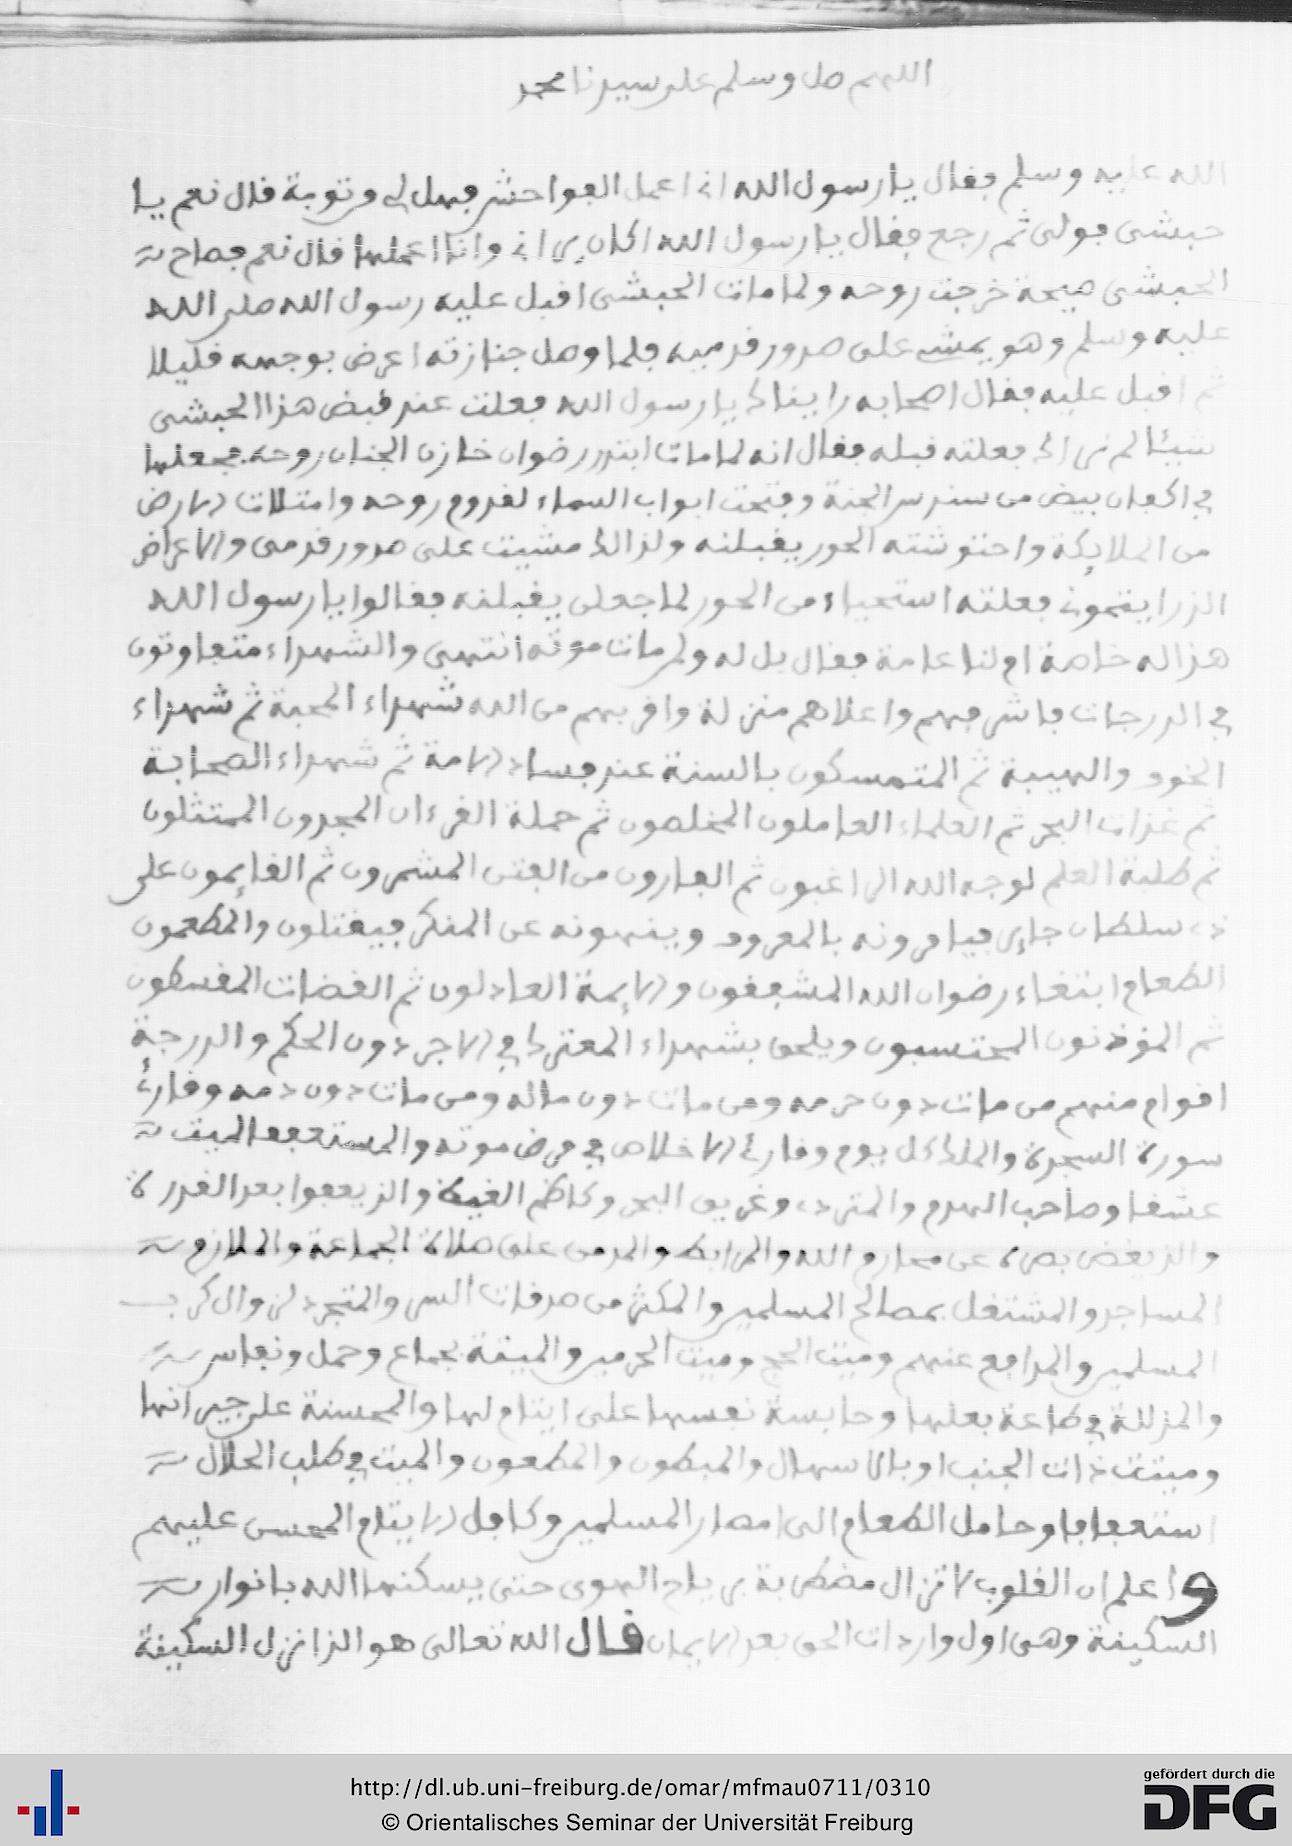 اللهم صل وسلم على سيدنا محمد
الله عليه وسلم فقال يا رسول الله اني اعمل الفواحش فهل لي من توبة قال نعم يا
حبشى فولى ثم رجع فقال يا رسول الله اكان يراني وانا اعملها قال نعم فصاح
الحبشى صيحة خرجت روحه ولما مات الحبشى اقبل عليه رسول الله صلى الله
عليه وسلم وهو يمشي على صدور قدميه فلما وصل جنازته اعرض بوجهه قليلا
ثم اقبل عليه فقال اصحابه رايناك يا رسول الله فعلت عند قبض هذا الحبشى
شيئا لم نراك فعلته قبله فقال انه لما مات ابتدر رضوان خازن الجنان روحه فجعلها
في اكفان بيض من سندس الجنة وفتحت ابواب السماء لقدوم روحه وامتلات الارض
من الملايكة واحتوشته الحور يقبلنه ولذالك مشيت على صدور قدمى والاعراض
الذى رايتموني فعلته استحياء من الحور لما جعلن يقبلنه فقالوا يا رسول الله
هذا له خاصة ام لنا عامة فقال بل له ولمن مات موته انتهى والشهداء متفاوتون
في الدرجات فاشرفهم واعلاهم منزلة واقربهم من الله شهداء المحبة ثم شهداء
الخوف والهيبة ثم المتمسكون بالسنة عند فساد الامة ثم شهداء الصحابة
ثم غزات البحر ثم العلماء العاملون المخلصون ثم حملة القرءان المجدون الممتثلون
ثم طلبة العلم لوجه الله الراغبون ثم الفارون من الفتن المشمرون ثم القايمون على
ذى سلطان جاير فيامرونه بالمعروف وينهونه عن المنكر فيقتلون والمطعمون
الطعام ابتغاء رضوان الله المشفقون والايمة العادلون ثم القضات المقسطون
ثم الموذنون المحتسبون ويلحق بشهداء المعترك في الاجر دون الحكم والدرجة
اقوام منهم من مات دون حرمه ومن مات دون ماله ومن مات دون دمه وقارئ
سورة السجدة والملك كل يوم وقارئ الاخلاص في مرض موته والمستعفف الميت
عشقا وصاحب الهدم والمتردى وغريق البحر وكاظم الغيظ والذى يعفوا بعد القدرة
والذى يغض بصره عن محارم الله والمرابط والمدمن على صلاة الجماعة والملازم
المساجد والمشتغل بمصالح المسلمين والمكثر من صدقات السر والمتجرد لزوال كرب
المسلمين والمدافع عنهم وميت الحج وميت الحرمين والميتة بجماع وحمل ونفاس
والمذللة في طاعة بعلها وحابسة نفسها على ايتام لها والمحسنة على جيرانها
وميتت ذات الجنب او بالاسهال والمبطون والمطعون والميت في طلب الحلال
استعفافا وحامل الطعام الى امصار المسلمين وكافل الايتام المحسن عليهم
واعلم ان القلوب لا تزال مضطربة برياح الهوى حتى يسكنها الله بانوار
السكينة وهى اول واردات الحق بعد الايمان قال الله تعالى هو الذى انزل السكينة
http://dl.ub.uni-freiburg.de/omar/mfmau0711/0310
© Orientalisches Seminar der Universität Freiburg
gefördert durch die
DFG